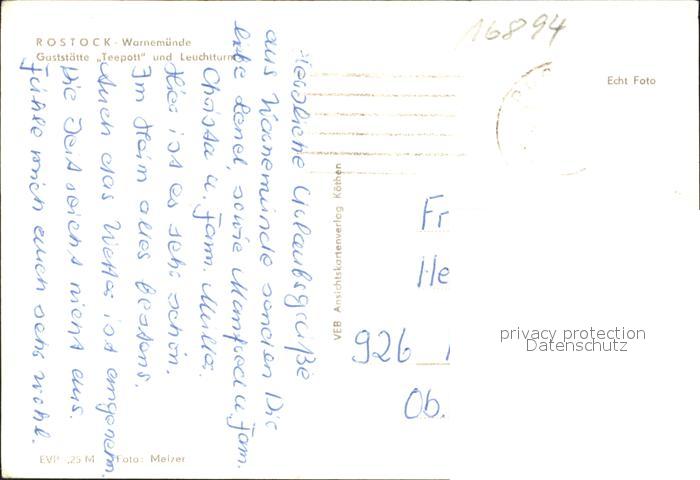 16894
ROSTOCK - Warnemünde
Gaststätte "Teepott" und Leuchtturm
Echt Foto
Herzliche Urlaubsgrüße
aus Warnemünde senden Dir
liebe Lenel, sowie Manfred u. Fam.
Christa u. Fam. Müller.
Hier ist es sehr schön.
Im Heim alles bestens.
Auch das Wetter ist angenehm.
Die Zeit reicht nicht aus.
Fühle mich auch sehr wohl.
VEB Ansichtskartenverlag Köthen
Fr
He
926
Ob.
privacy protection
Datenschutz
EVP -,25 M Foto: Melzer